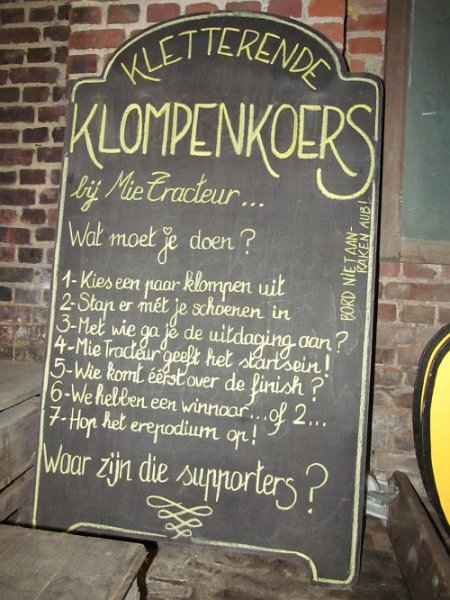 KLETTERENDE
KLOMPENKOERS
bij Mie Tracteur...
Wat moet je doen?
1- Kies een paar klompen uit
2- Stap er mét je schoenen in
3- Met wie ga je de uitdaging aan?
4- Mie Tracteur geeft het startsein!
5- Wie komt éérst over de finish?
6- We hebben een winnaar... of 2...
7- Hop het erepodium op!
Waar zijn die supporters?
BORD NIET AAN-
RAKEN AUB!